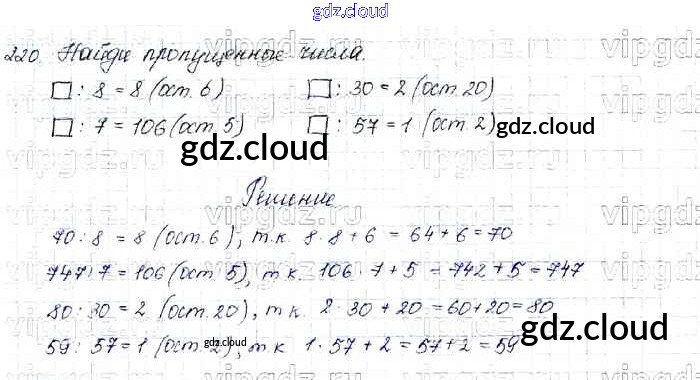 gdz.cloud
220. Найди пропущенные числа.
□ : 8 = 8 (ост. 6) □ : 30 = 2 (ост. 20)
□ : 7 = 106 (ост. 5) □ : 57 = 1 (ост. 2) gdz.cloud
gdz.cloud
Решение
70 : 8 = 8 (ост. 6), т.к. 8 · 8 + 6 = 64 + 6 = 70
747 : 7 = 106 (ост. 5), т.к. 106 · 7 + 5 = 742 + 5 = 747
80 : 30 = 2 (ост. 20), т.к. 2 · 30 + 20 = 60 + 20 = 80
gdz.cloud
59 : 57 = 1 (ост. 2), т.к. 1 · 57 + 2 = 57 + 2 = 59
gdz.cloud
gdz.cloud